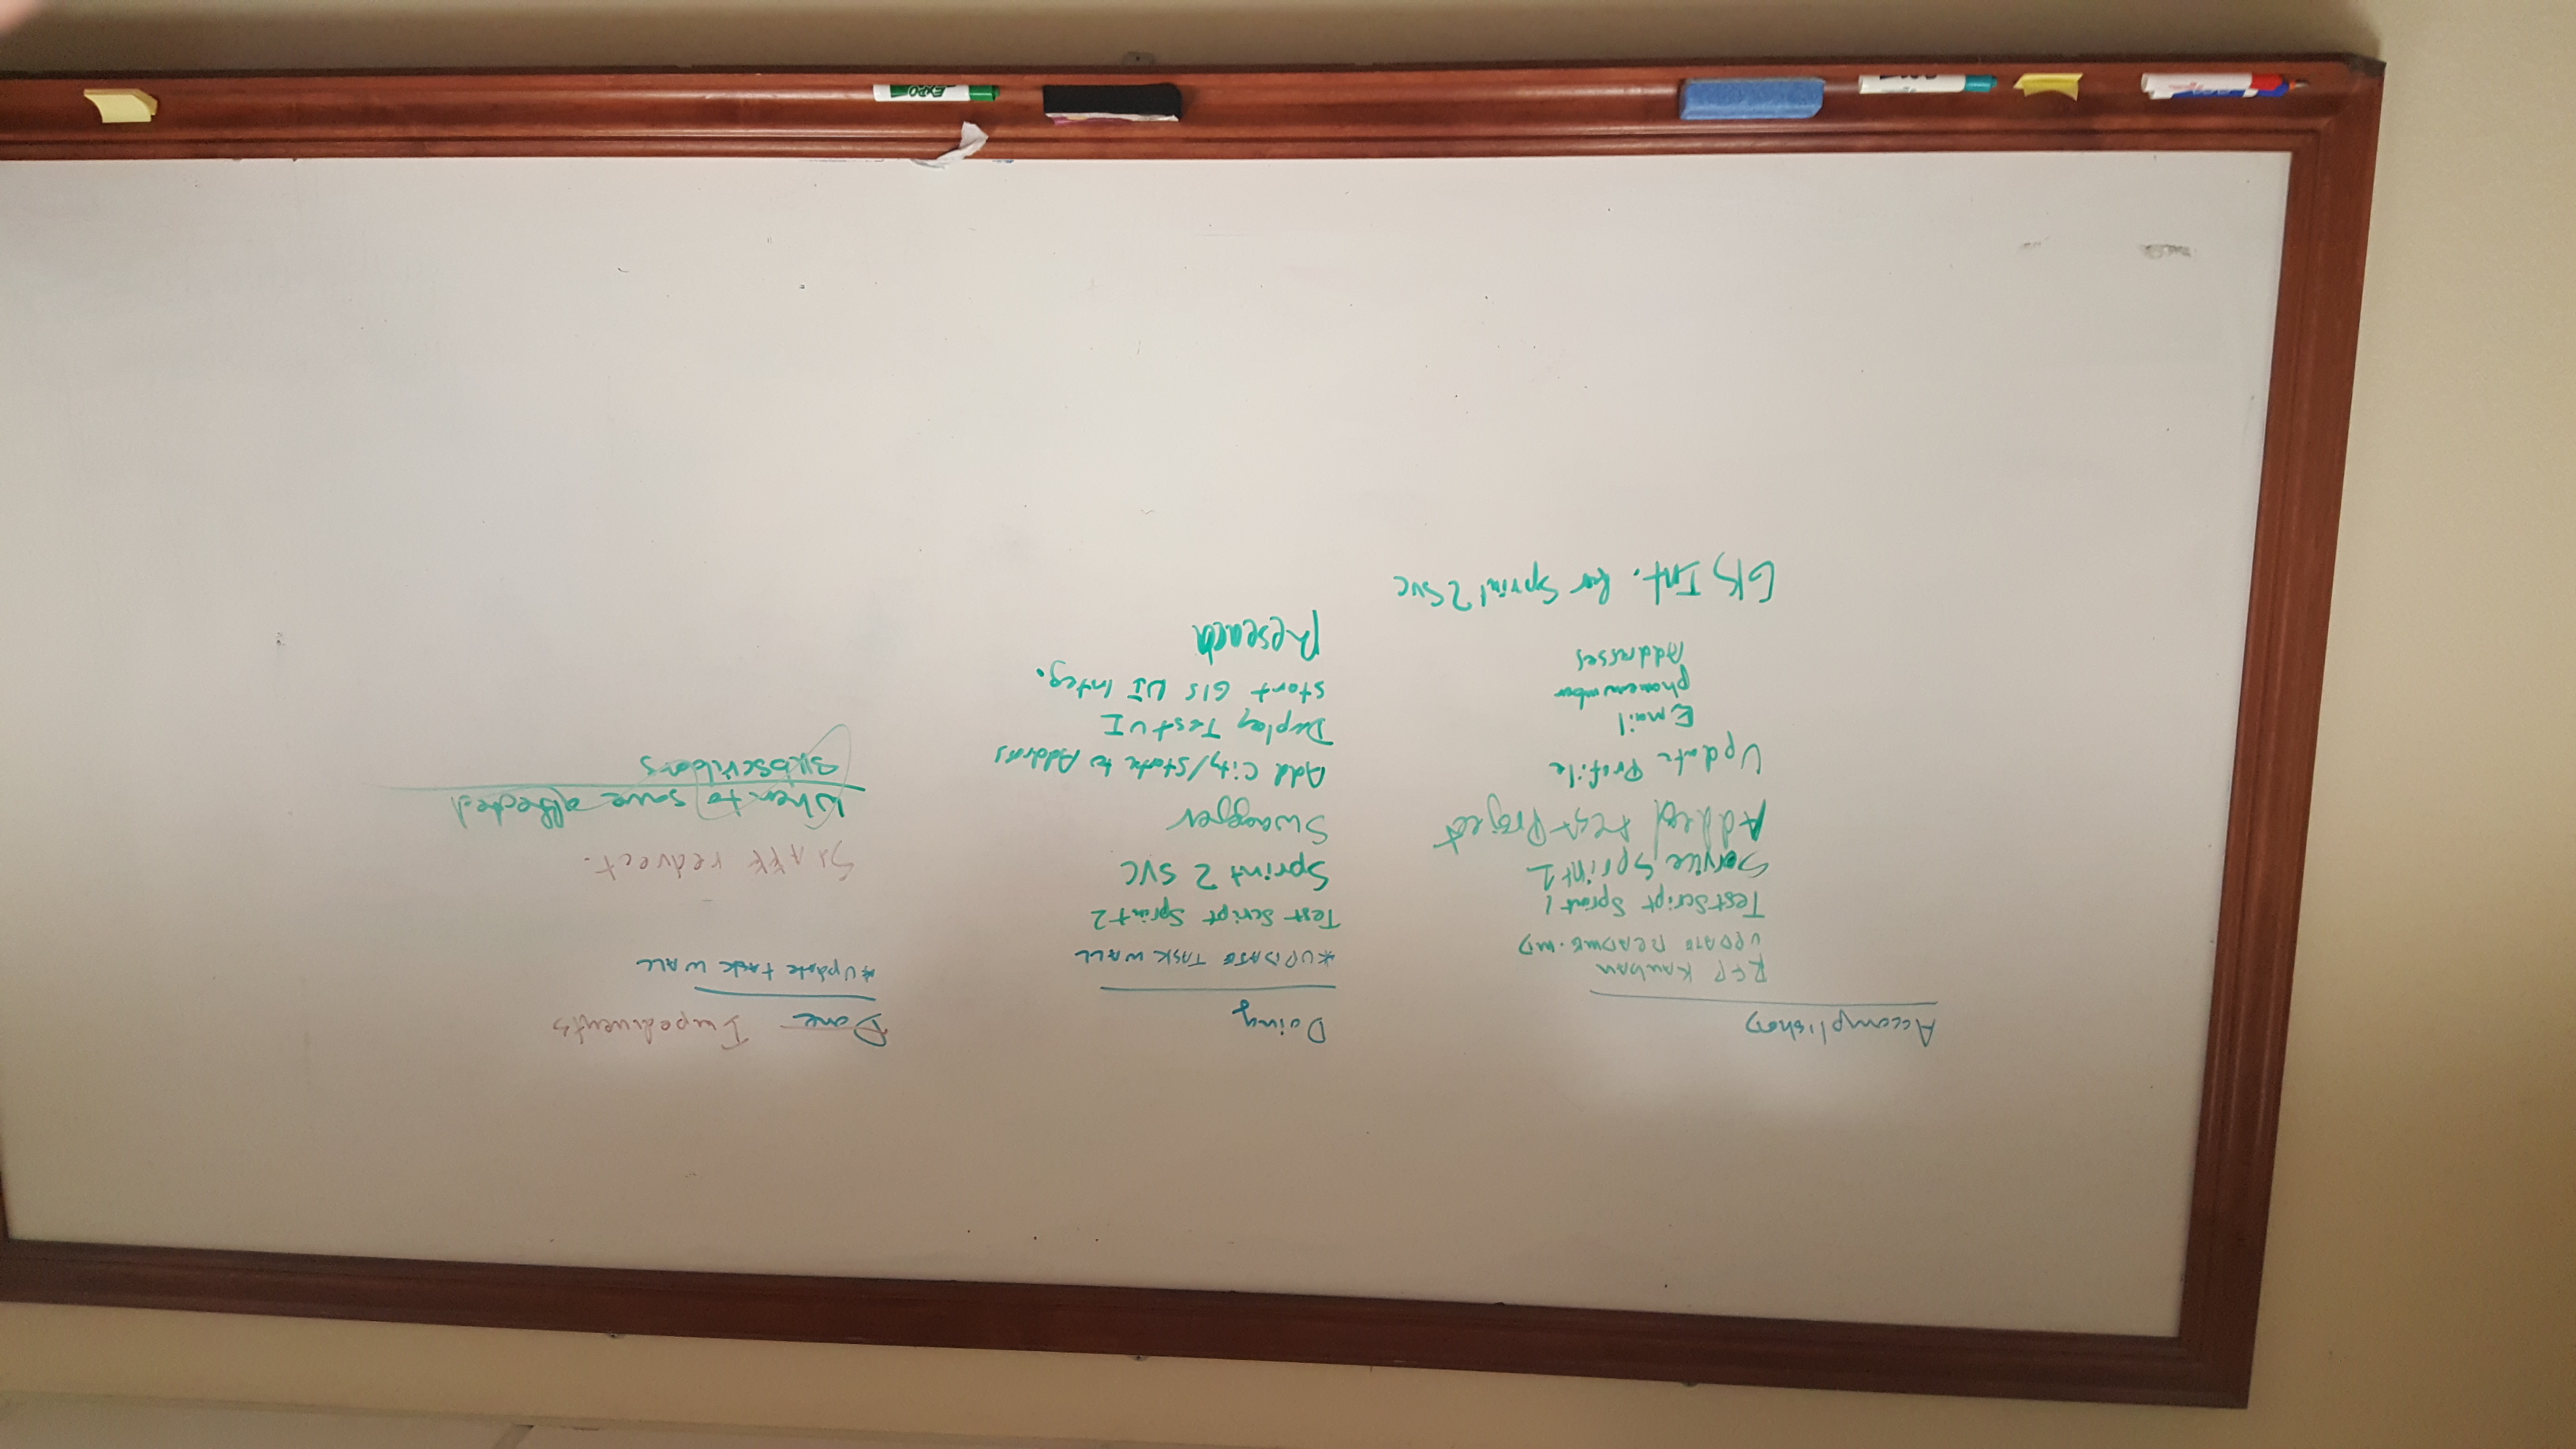 Accomplished
RFP Kanban
UPDATE README.MD
Test Script Sprint 1
Service Sprint 1
Added test Project
Update Profile
Email
phonenumber
Addresses
GIS Int. for Sprint 2 Svc
Doing
*UPDATE TASK WALL
Test Script Sprint 2
Sprint 2 SVC
Swagger
Add City/State to Address
Deploy Test UI
start GIS UI Integ.
Research
Done Impediments
*Update task WALL
STAFF redirect.
When to save affected
subscribers
EXPO